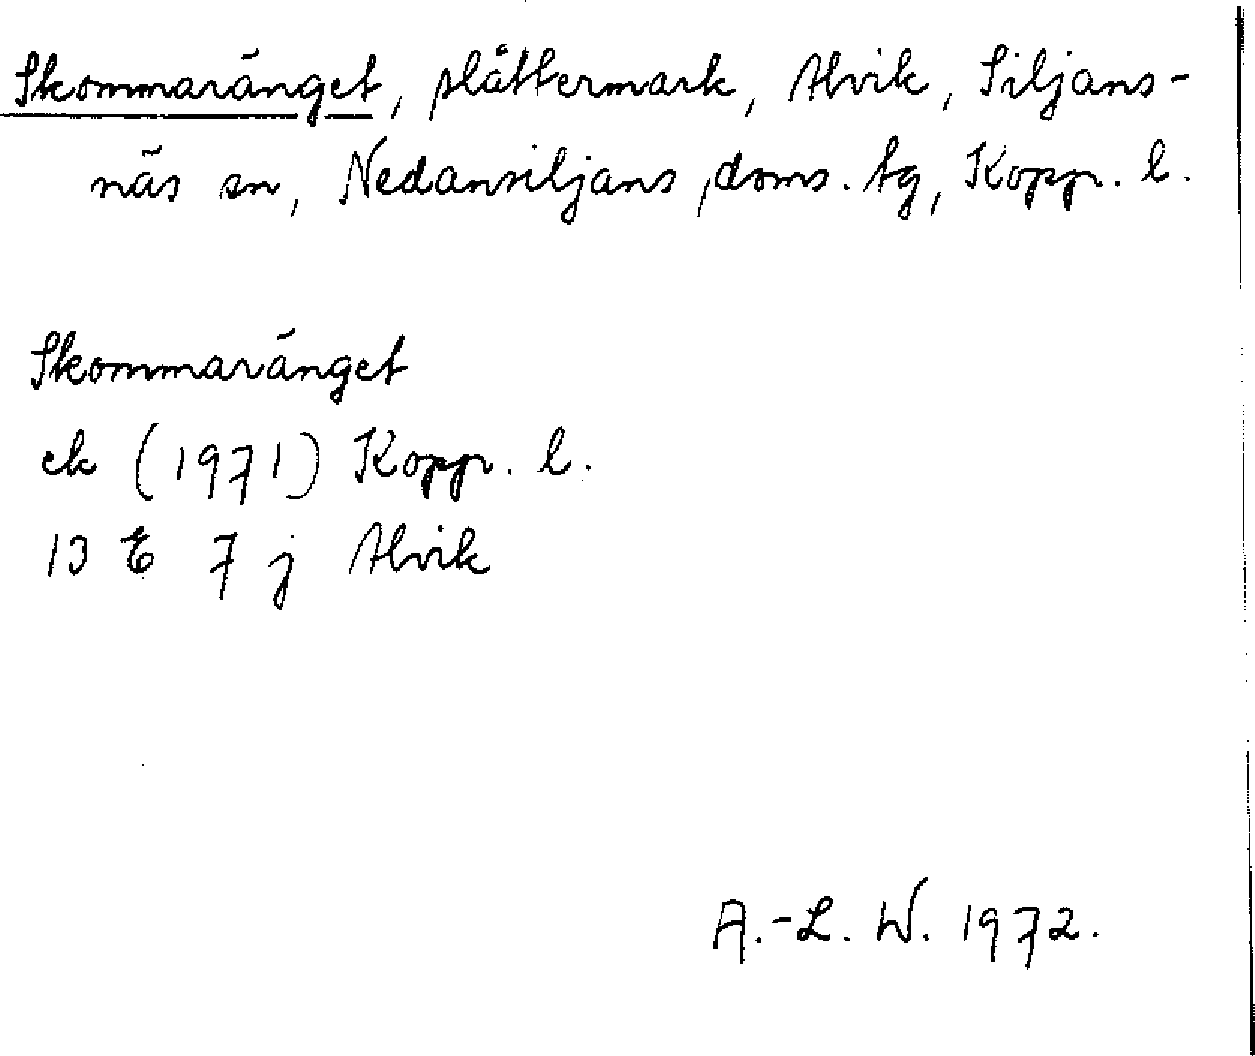 Skommaränget, slåttermark, Alvik, Siljans-
näs sn, Nedansiljans doms. tg, Kopp. l.
Skommaränget
ek (1971) Kopp. l.
13 E 7 j Alvik
A.-L. W. 1972.